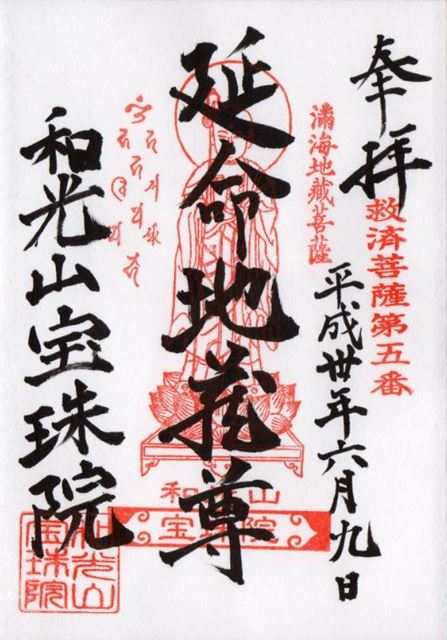 奉拝
救済菩薩第五番
平成卅年六月九日
満海地蔵菩薩
延命地蔵尊
和光山
宝珠院
和光山宝珠院
和光山
宝珠院